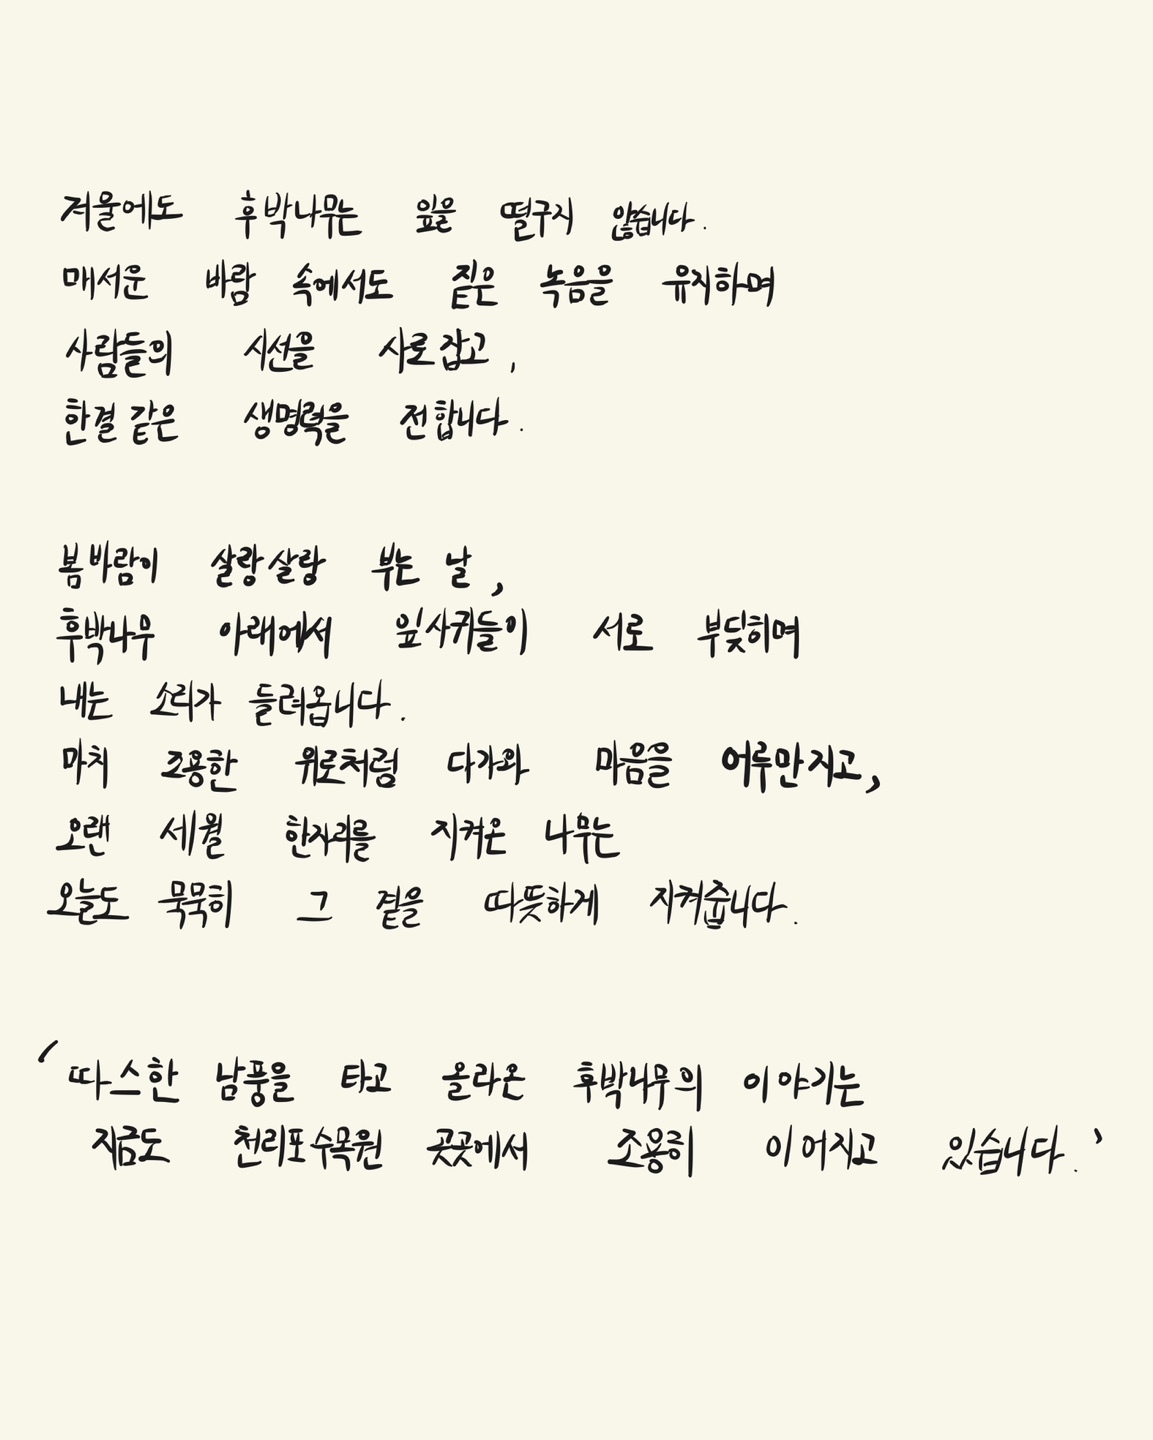 겨울에도 후박나무는 잎을 떨구지 않습니다.
매서운 바람 속에서도 짙은 녹음을 유지하며
사람들의 시선을 사로잡고,
한결같은 생명력을 전합니다.
봄바람이 살랑살랑 부는 날,
후박나무 아래에서 잎사귀들이 서로 부딪히며
내는 소리가 들려옵니다.
마치 조용한 위로처럼 다가와 마음을 어루만지고,
오랜 세월 한자리를 지켜온 나무는
오늘도 묵묵히 그 곁을 따뜻하게 지켜줍니다.
'따스한 남풍을 타고 올라온 후박나무의 이야기는
지금도 천리포수목원 곳곳에서 조용히 이어지고 있습니다.'